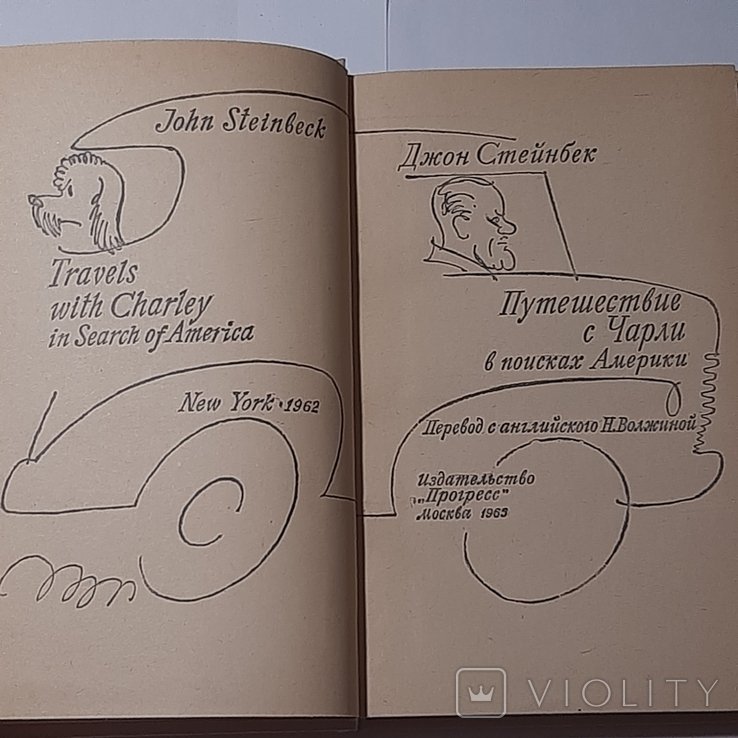 John Steinbeck
Travels
with Charley
in Search of America
New York · 1962
Джон Стейнбек
Путешествие
с Чарли
в поисках Америки
Перевод с английского Н. Волжиной
Издательство
„Прогресс"
Москва 1963
VIOLITY